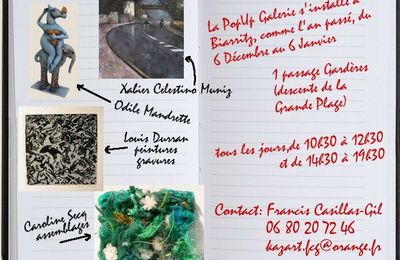 Xabier Celestino Muniz
Odile Mandrette
Louis Durran
peintures
gravures
Caroline Secq
assemblages
La PopUp Galerie s'installe à
Biarritz, comme l'an passé, du
6 Décembre au 6 Janvier
1 passage Gardères
(descente de la
Grande Plage)
tous les jours, de 10h30 à 12h30
et de 14h30 à 19h30
Contact: Francis Casillas-Gil
06 80 20 72 46
kazart.fcg@orange.fr